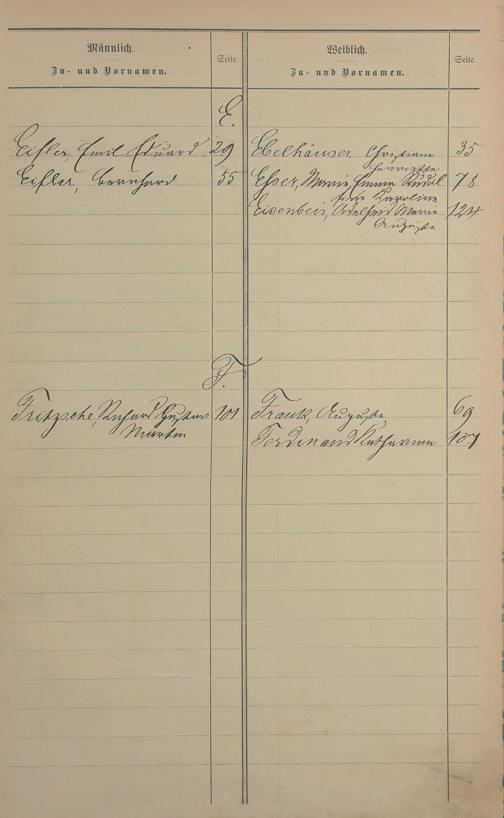 Männlich.
Zu- und Vornamen.
Seite.
Weiblich.
Zu- und Vornamen.
Seite.
E.
Eifler, Emil Eduard 29
Eifler, Bernhard 55
Ebelhäuser, Christiane 35
Henriette
Esser, Marie Emma 78
Karoline
Eisenbeis, Adelheid Marie 124
Auguste
F.
Fritzsche, Richard Gustav 101
Martin
Frank, Auguste 69
Ferdinand Katharina 107